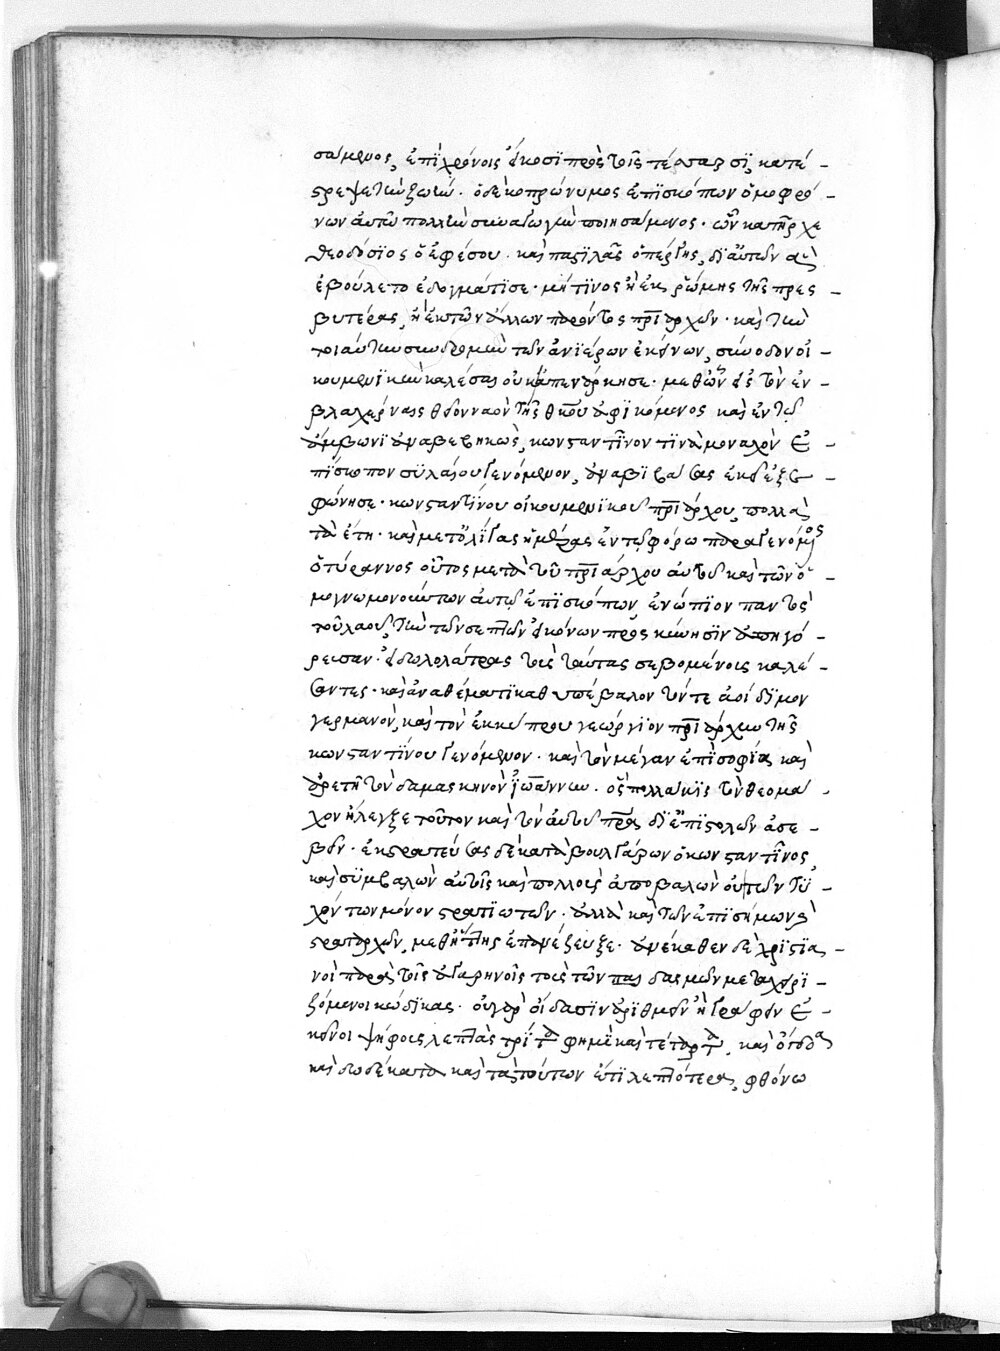 σάμενος, ἐπὶ χρόνοις εἴκοσι πρὸς τοῖς τέσσαρσϊ, κατέ-
στρεψε τὴν ζωήν. ὁ δὲ κοπρώνυμος ἐπϊσκόπων ὁμοφρό-
νων αὐτῶ πολλῶν συναγωγὴν ποιησάμενος. ὧν κατῆρχε
θεοδόσϊος ὁ ἐφέσου. καὶ παστϊλᾶς ὁ πέργης, δι' αὐτῶν ἃ
ἐβούλετο ἐδογμάτϊσε. μήτϊνος ἢ ἐκ ῥώμης τῆς πρεσ-
βυτέρας, ἢ ἐκ τῶν ἄλλων παρόντος πρϊαρχῶν. καὶ τὴν
τοιαύτην συνδρομὴν τῶν ἀνϊέρων ἐκείνων, σύνοδον οἰ-
κουμενϊκὴν καλέσαι οὐκ ἀπενάρκησε. μεθ' ὧν εἰς τὸν ἐν
βλαχέρναις θεῖον ναὸν τῆς θκου ἀφϊκόμενος καὶ ἐν τῶ
ἄμβωνϊ ἀναβεβηκὼς, κωνσταντῖνον τϊνὰ μοναχὸν ἐ-
πίσκοπον συλαίου γενόμενον, ἀναβϊβάσας ἐκεῖ ἐξε-
φώνησε. κωνσταντίνου οἰκουμενϊκοῦ πρϊάρχου, πολλὰ
τὰ ἔτη. καὶ μετ' ὀλίγας ἡμέρας ἐν τῶ φόρω παραγενόμος
ὁ τύραννος οὗτος μετὰ τοῦ πρϊάρχου αὐτοῦ καὶ τῶν ὁ-
μογνωμονούντων αὐτῶ ἐπϊσκόπων, ἐνώπϊον παντὸς
τοῦ λαοῦ, τὴν τῶν σεπτῶν εἰκόνων πρὸς κύνησϊν ἀπηγό-
ρευσαν. εἰδωλολάτρας τοὺς ταύτας σεβομένους καλέ-
σαντες. καὶ ἀναθέματϊ καθυπέβαλον τόν τε ἀοίδϊμον
γερμανὸν, καὶ τὸν ἐκ κύπρου γεώργϊον πρϊάρχην τῆς
κωνσταντίνου γενόμενον. καὶ τὸν μέγαν ἐπὶ σοφία καὶ
ἀρετῆ τὸν δαμασκηνὸν ϊωάννην. ὃς πολλάκϊς τὸν θεομά-
χον ἤλεγξε τοῦτον καὶ τὸν αὐτοῦ πρα, δι' ἐπϊστολῶν ἀσε-
βεῖν. ἐκστρατεύσας δὲ κατὰ βουλγάρων ὁ κωνσταντῖνος,
καὶ συμβαλὼν αὐτοῖς καὶ πολλοὺς ἀποβαλὼν οὐ τῶν τυ-
χόντων μόνον στρατϊωτῶν. ἀλλὰ καὶ τῶν ἐπϊσήμων καὶ
στραταρχῶν, μεθ' ἥττης ἐπανέζευξε. ἀνέκαθεν δὲ χρϊστϊα-
νοὶ παρὰ τοῖς ἀγαρηνοῖς τοὺς τῶν πασ δασμῶν μεταχειρϊ-
ζόμενοι κώδϊκας. οὐ γὰρ οἴδασϊν ἀρϊθμεῖν ἢ γράφειν ἐ-
κεῖνοι ψήφους λεπτὰς τρίτα φημὶ καὶ τέταρτα, καὶ ὄγδοα
καὶ δωδέκατα καὶ τὰς τούτων ἔτϊ λεπτότερα, φθόνω